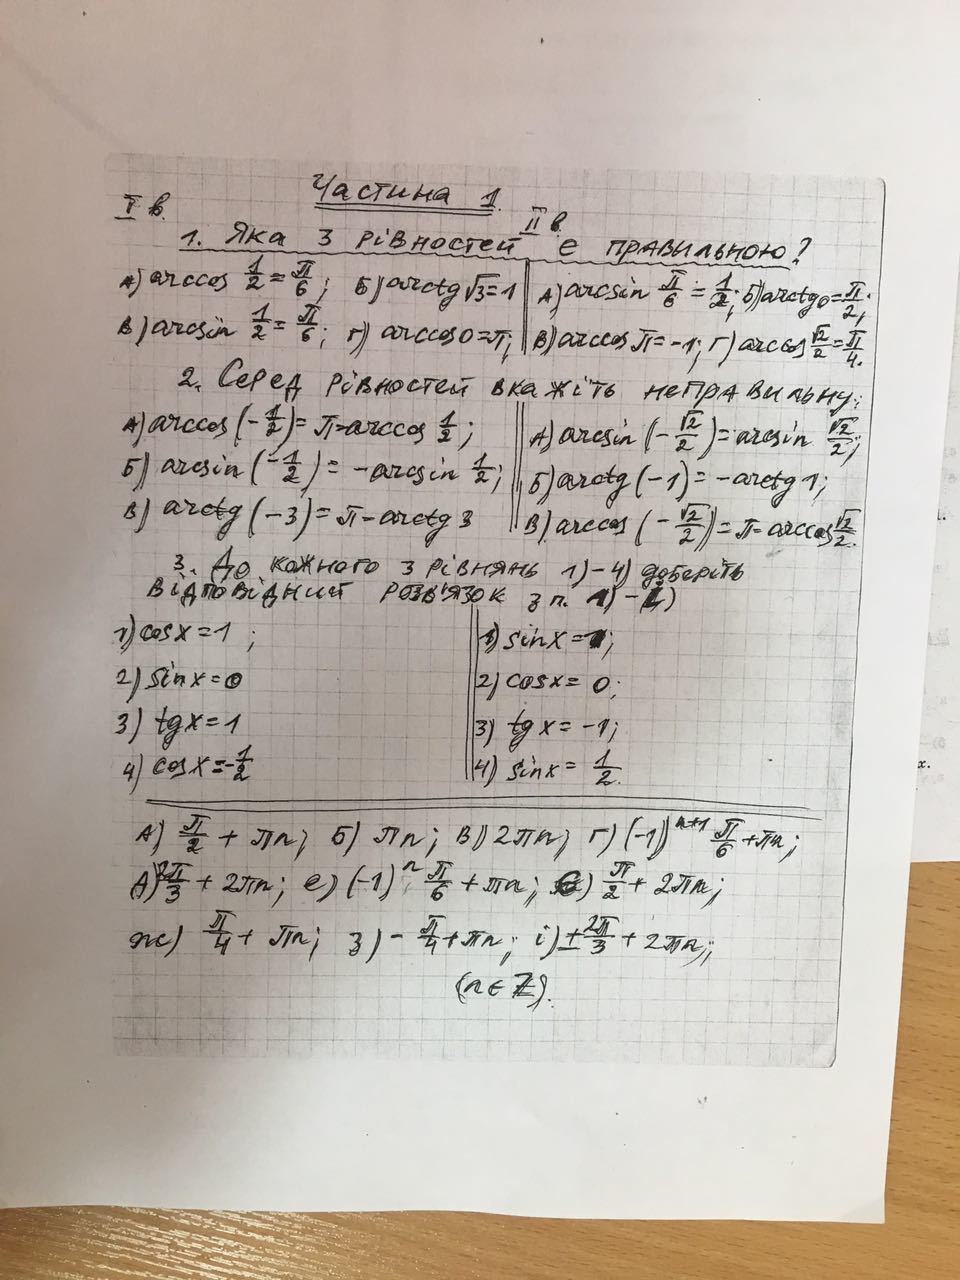 Частина 1.
I в.
II в.
1. Яка з рівностей є правильною?
А) arccos 1/2 = π/6; Б) arctg √3 = 1
В) arcsin 1/2 = π/6; Г) arccos 0 = π;
А) arcsin π/6 = 1/2; Б) arctg 0 = π/2;
В) arccos π = -1; Г) arccos √2/2 = π/4.
2. Серед рівностей вкажіть неправильну:
А) arccos (-1/2) = π - arccos 1/2;
Б) arcsin (-1/2) = -arcsin 1/2;
В) arctg (-3) = π - arctg 3
А) arcsin (-√2/2) = arcsin √2/2;
Б) arctg (-1) = -arctg 1;
В) arccos (-√2/2) = π - arccos √2/2.
3. До кожного з рівнянь 1) - 4) доберіть
відповідний розв'язок з п.
1) cos x = 1;
2) sin x = 0
3) tg x = 1
4) cos x = -1/2
1) sin x = 1;
2) cos x = 0;
3) tg x = -1;
4) sin x = 1/2.
А) π/2 + πn; Б) πn; В) 2πn; Г) (-1)^(n+1) π/6 + πn;
Д) 2π/3 + 2πn; е) (-1)^n π/6 + πn; є) π/2 + 2πn;
ж) π/4 + πn; з) -π/4 + πn; і) ±2π/3 + 2πn;
(n ∈ Z).
х.